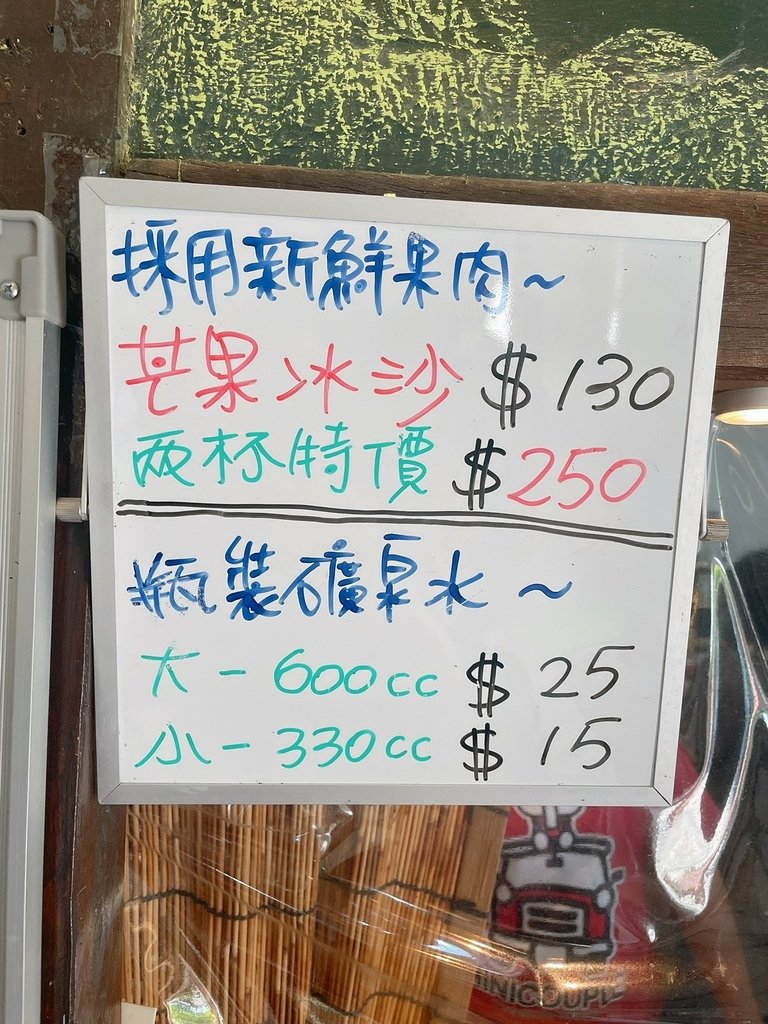 採用新鮮果肉~
芒果冰沙 $130
兩杯特價 $250
瓶裝礦泉水~
大-600cc $25
小-330cc $15
INICOUPE